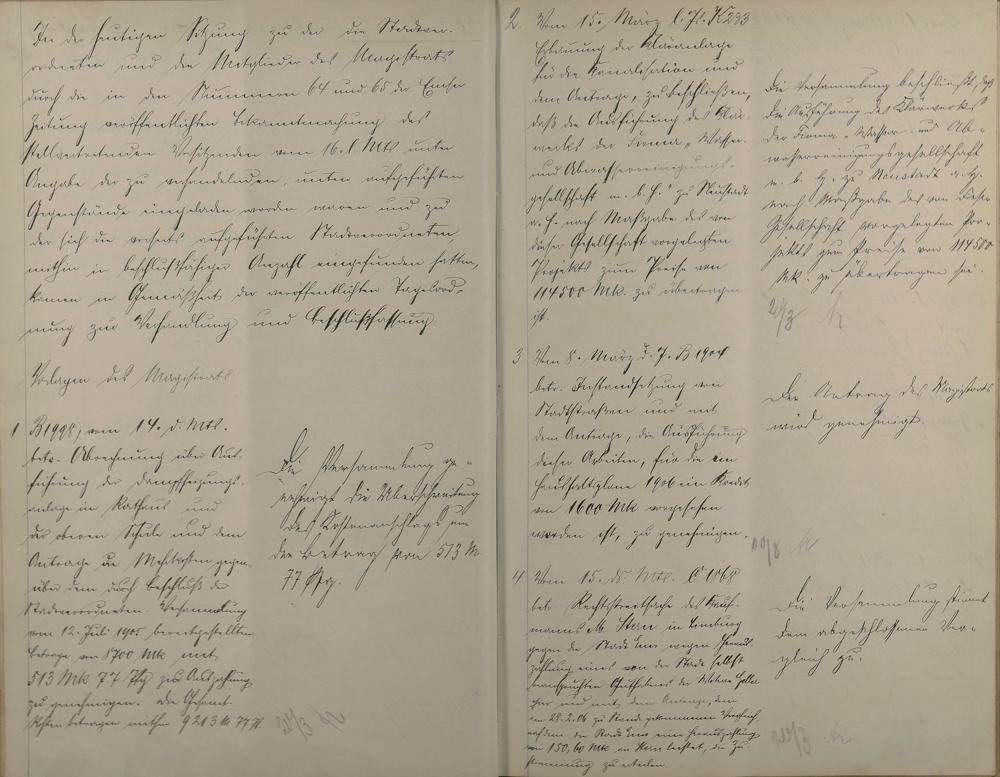 In der heutigen Sitzung zu der die Stadtver-
ordneten und die Mitglieder des Magistrats
durch die in den Nummern 64 und 65 der Emser
Zeitung veröffentlichten Bekanntmachung des
stellvertretenden Vorsitzenden vom 16. l. Mts unter
Angabe der zu verhandelnden, unten aufgeführten
Gegenstände eingeladen worden waren und zu
der sich die vorseits aufgeführten Stadtverordneten,
mithin in beschlußfähiger Anzahl eingefunden hatten,
kamen in Gemäßheit der veröffentlichten Tagesord-
nung zur Verhandlung und Beschlußfassung
Vorlagen des Magistrats
1 B1998, vom 14. d. Mts.
betr. Abrechnung über Aus-
führung der Dampfheizungs-
anlage im Rathaus und
der oberen Schule und dem
Antrage die Mehrkosten gegen-
über dem durch Beschluß der
Stadtverordneten-Versammlung
vom 12. Juli 1905 bereitgestellten
Betrage von 8700 Mk mit
513 Mk 77 Pfg zur Auszahlung
zu genehmigen. Die Gesamt-
kosten betragen mithin 9213 M. 77 Pf.
Die Versammlung ge-
nehmigt die Überschreitung
des Kostenanschlags um
den Betrag von 513 M
77 Pfg.
2. Vom 15. März l. Js. K233
Erbauung der Kläranlage
für die Kanalisation und
dem Antrage, zu beschließen,
daß die Ausführung des Klär-
werks der Firma "Wasser-
und Abwasserreinigungs-
gesellschaft m. b. H." zu Neustadt
a. H. nach Maßgabe des von
dieser Gesellschaft vorgelegten
Projekts zum Preise von
114500 Mk. zu übertragen
ist.
Die Versammlung beschließt, daß
die Ausführung des Klärwerks
der Firma "Wasser- und Ab-
wasserreinigungsgesellschaft
m. b. H. zu Neustadt a. H.
nach Maßgabe des von dieser
Gesellschaft vorgelegten Pro-
jekts zum Preise von 114500
Mk. zu übertragen sei.
3 Vom 8. März d. J. B 1904
betr. Instandsetzung von
Stadtstraßen und mit
dem Antrage, die Ausführung
dieser Arbeiten, für die im
Haushaltsplane 1906 ein Kredit
von 1600 Mk vorgesehen
worden ist, zu genehmigen.
Der Antrag des Magistrats
wird genehmigt.
4 Vom 15. ds. Mts. C 1868
betr. Rechtsstreitsache des Kauf-
manns M. Stern in Limburg
gegen die Stadt Ems wegen Heraus-
zahlung eines von der Stadt selbst
beanspruchten Guthabens der Witwe
hier und mit dem Antrage, dem
am 28.2.06 zu Stande gekommenen Vergleich,
nachdem die Stadt Ems eine Herauszahlung
von 150,60 Mk an Stern leistet, die Zu-
stimmung zu erteilen.
Die Versammlung stimmt
dem abgeschlossenen Ver-
gleich zu.